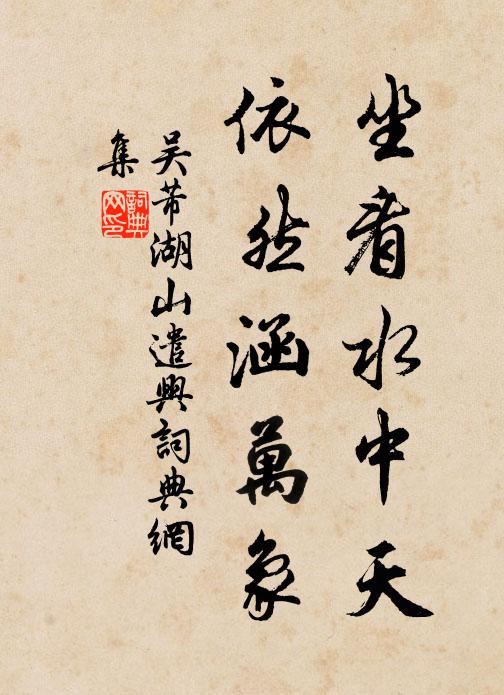 坐看水中天
依然涵萬象
吴芾湖山遣興詞典網
集
詞典
网印